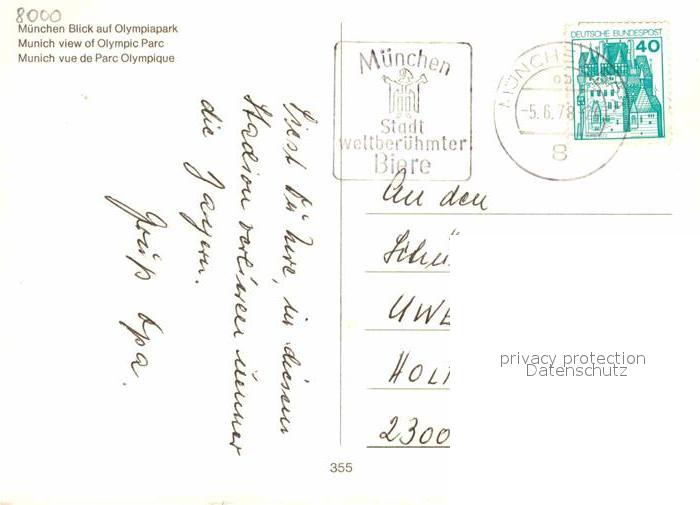 8000
München Blick auf Olympiapark
Munich view of Olympic Parc
Munich vue de Parc Olympique
München
Stadt
weltberühmter
Biere
MÜNCHEN
-5.6.78
8
DEUTSCHE BUNDESPOST
40
Siest Du Uwe, in diesem
Stadion verlieren immer
die Bayern.
Gruß Opa.
An den
Schü
UWE
HOL
2300
privacy protection
Datenschutz
355